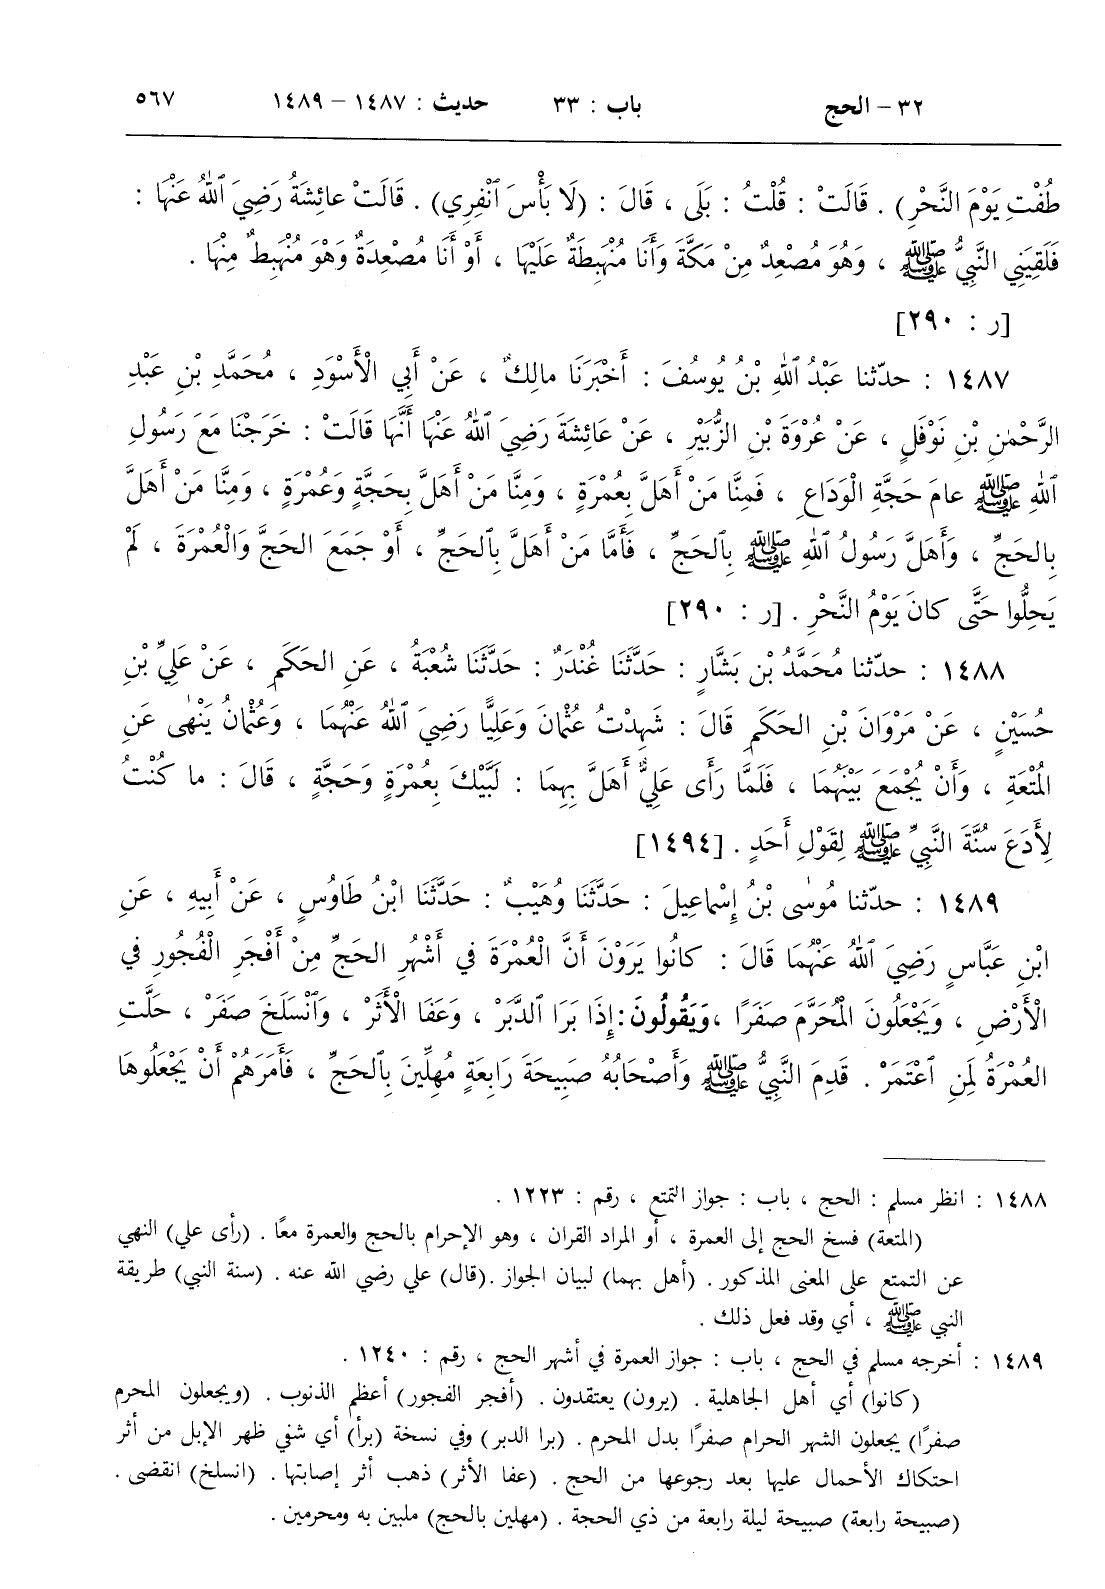 ٣٢ – الحج باب : ٣٣ حديث : ١٤٨٧ – ١٤٨٩ ٥٦٧
طُفْتِ يَوْمَ النَّحْرِ) . قَالَتْ : قُلْتُ : بَلَى ، قَالَ : (لَا بَأْسَ ٱنْفِرِي) . قَالَتْ عائِشَةُ رَضِيَ ٱللهُ عَنْهَا :
فَلَقِيَنِي النَّبِيُّ ﷺ ، وَهُوَ مُصْعِدٌ مِنْ مَكَّةَ وَأَنَا مُنْهَبِطَةٌ عَلَيْهَا ، أَوْ أَنَا مُصْعِدَةٌ وَهْوَ مُنْهَبِطٌ مِنْهَا .
[ر : ٢٩٠]
١٤٨٧ : حدّثنا عَبْدُ ٱللهِ بْنُ يُوسُفَ : أَخْبَرَنَا مالِكٌ ، عَنْ أَبِي الْأَسْوَدِ ، مُحَمَّدِ بْنِ عَبْدِ
الرَّحْمٰنِ بْنِ نَوْفَلٍ ، عَنْ عُرْوَةَ بْنِ الزُّبَيْرِ ، عَنْ عَائِشَةَ رَضِيَ ٱللهُ عَنْهَا أَنَّهَا قَالَتْ : خَرَجْنَا مَعَ رَسُولِ
ٱللهِ ﷺ عامَ حَجَّةِ الْوَدَاعِ ، فَمِنَّا مَنْ أَهَلَّ بِعُمْرَةٍ ، وَمِنَّا مَنْ أَهَلَّ بِحَجَّةٍ وَعُمْرَةٍ ، وَمِنَّا مَنْ أَهَلَّ
بِالحَجِّ ، وَأَهَلَّ رَسُولُ ٱللهِ ﷺ بِٱلحَجِّ ، فَأَمَّا مَنْ أَهَلَّ بِٱلحَجِّ ، أَوْ جَمَعَ الحَجَّ وَالْعُمْرَةَ ، لَمْ
يَحِلُّوا حَتَّى كانَ يَوْمُ النَّحْرِ . [ر : ٢٩٠]
١٤٨٨ : حدّثنا مُحَمَّدُ بْنُ بَشَّارٍ : حَدَّثَنَا غُنْدَرٌ : حَدَّثَنَا شُعْبَةُ ، عَنِ الحَكَمِ ، عَنْ عَلِيِّ بْنِ
حُسَيْنٍ ، عَنْ مَرْوَانَ بْنِ الحَكَمِ قَالَ : شَهِدْتُ عُثْمانَ وَعَلِيًّا رَضِيَ ٱللهُ عَنْهُمَا ، وَعُثْمانُ يَنْهٰى عَنِ
المُتْعَةِ ، وَأَنْ يُجْمَعَ بَيْنَهُمَا ، فَلَمَّا رَأَى عَلِيٌّ أَهَلَّ بِهِمَا : لَبَّيْكَ بِعُمْرَةٍ وَحَجَّةٍ ، قَالَ : ما كُنْتُ
لِأَدَعَ سُنَّةَ النَّبِيِّ ﷺ لِقَوْلِ أَحَدٍ . [١٤٩٤]
١٤٨٩ : حدّثنا مُوسٰى بْنُ إِسْماعِيلَ : حَدَّثَنَا وُهَيْبٌ : حَدَّثَنَا ابْنُ طَاوُسٍ ، عَنْ أَبِيهِ ، عَنِ
ابْنِ عَبَّاسٍ رَضِيَ ٱللهُ عَنْهُمَا قَالَ : كانُوا يَرَوْنَ أَنَّ الْعُمْرَةَ في أَشْهُرِ الحَجِّ مِنْ أَفْجَرِ الْفُجُورِ في
الْأَرْضِ ، وَيَجْعَلُونَ الْمُحَرَّمَ صَفَرًا ، وَيَقُولُونَ : إِذَا بَرَا ٱلدَّبَرْ ، وَعَفَا الْأَثَرْ ، وَٱنْسَلَخَ صَفَرْ ، حَلَّتِ
العُمْرَةُ لِمَنِ ٱعْتَمَرْ . قَدِمَ النَّبِيُّ ﷺ وَأَصْحَابُهُ صَبِيحَةَ رَابِعَةٍ مُهِلِّينَ بِٱلحَجِّ ، فَأَمَرَهُمْ أَنْ يَجْعَلُوهَا
١٤٨٨ : انظر مسلم : الحج ، باب : جواز التمتع ، رقم : ١٢٢٣ .
(المتعة) فسخ الحج إلى العمرة ، أو المراد القران ، وهو الإحرام بالحج والعمرة معًا . (رأى علي) النهي
عن التمتع على المعنى المذكور . (أهل بهما) لبيان الجواز .(قال) علي رضي الله عنه . (سنة النبي) طريقة
النبي ﷺ ، أي وقد فعل ذلك .
١٤٨٩ : أخرجه مسلم في الحج ، باب : جواز العمرة في أشهر الحج ، رقم : ١٢٤٠ .
(كانوا) أي أهل الجاهلية . (يرون) يعتقدون . (أفجر الفجور) أعظم الذنوب . (ويجعلون المحرم
صفرًا) يجعلون الشهر الحرام صفرًا بدل المحرم . (برا الدبر) وفي نسخة (برأ) أي شفي ظهر الإبل من أثر
احتكاك الأحمال عليها بعد رجوعها من الحج . (عفا الأثر) ذهب أثر إصابتها . (انسلخ) انقضى .
(صبيحة رابعة) صبيحة ليلة رابعة من ذي الحجة . (مهلين بالحج) ملبين به ومحرمين .